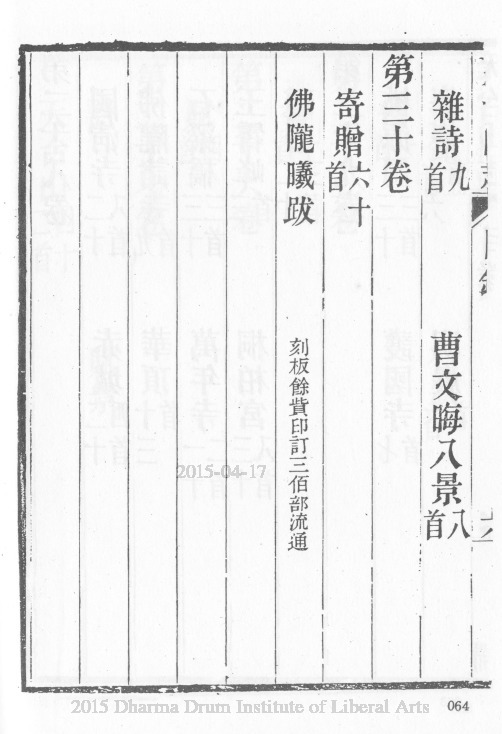 雜詩九首 曹文晦八景八首
第三十卷
寄贈六十首
佛隴曦跋 刻板餘貲印訂三佰部流通
2015-04-17
2015 Dharma Drum Institute of Liberal Arts
064